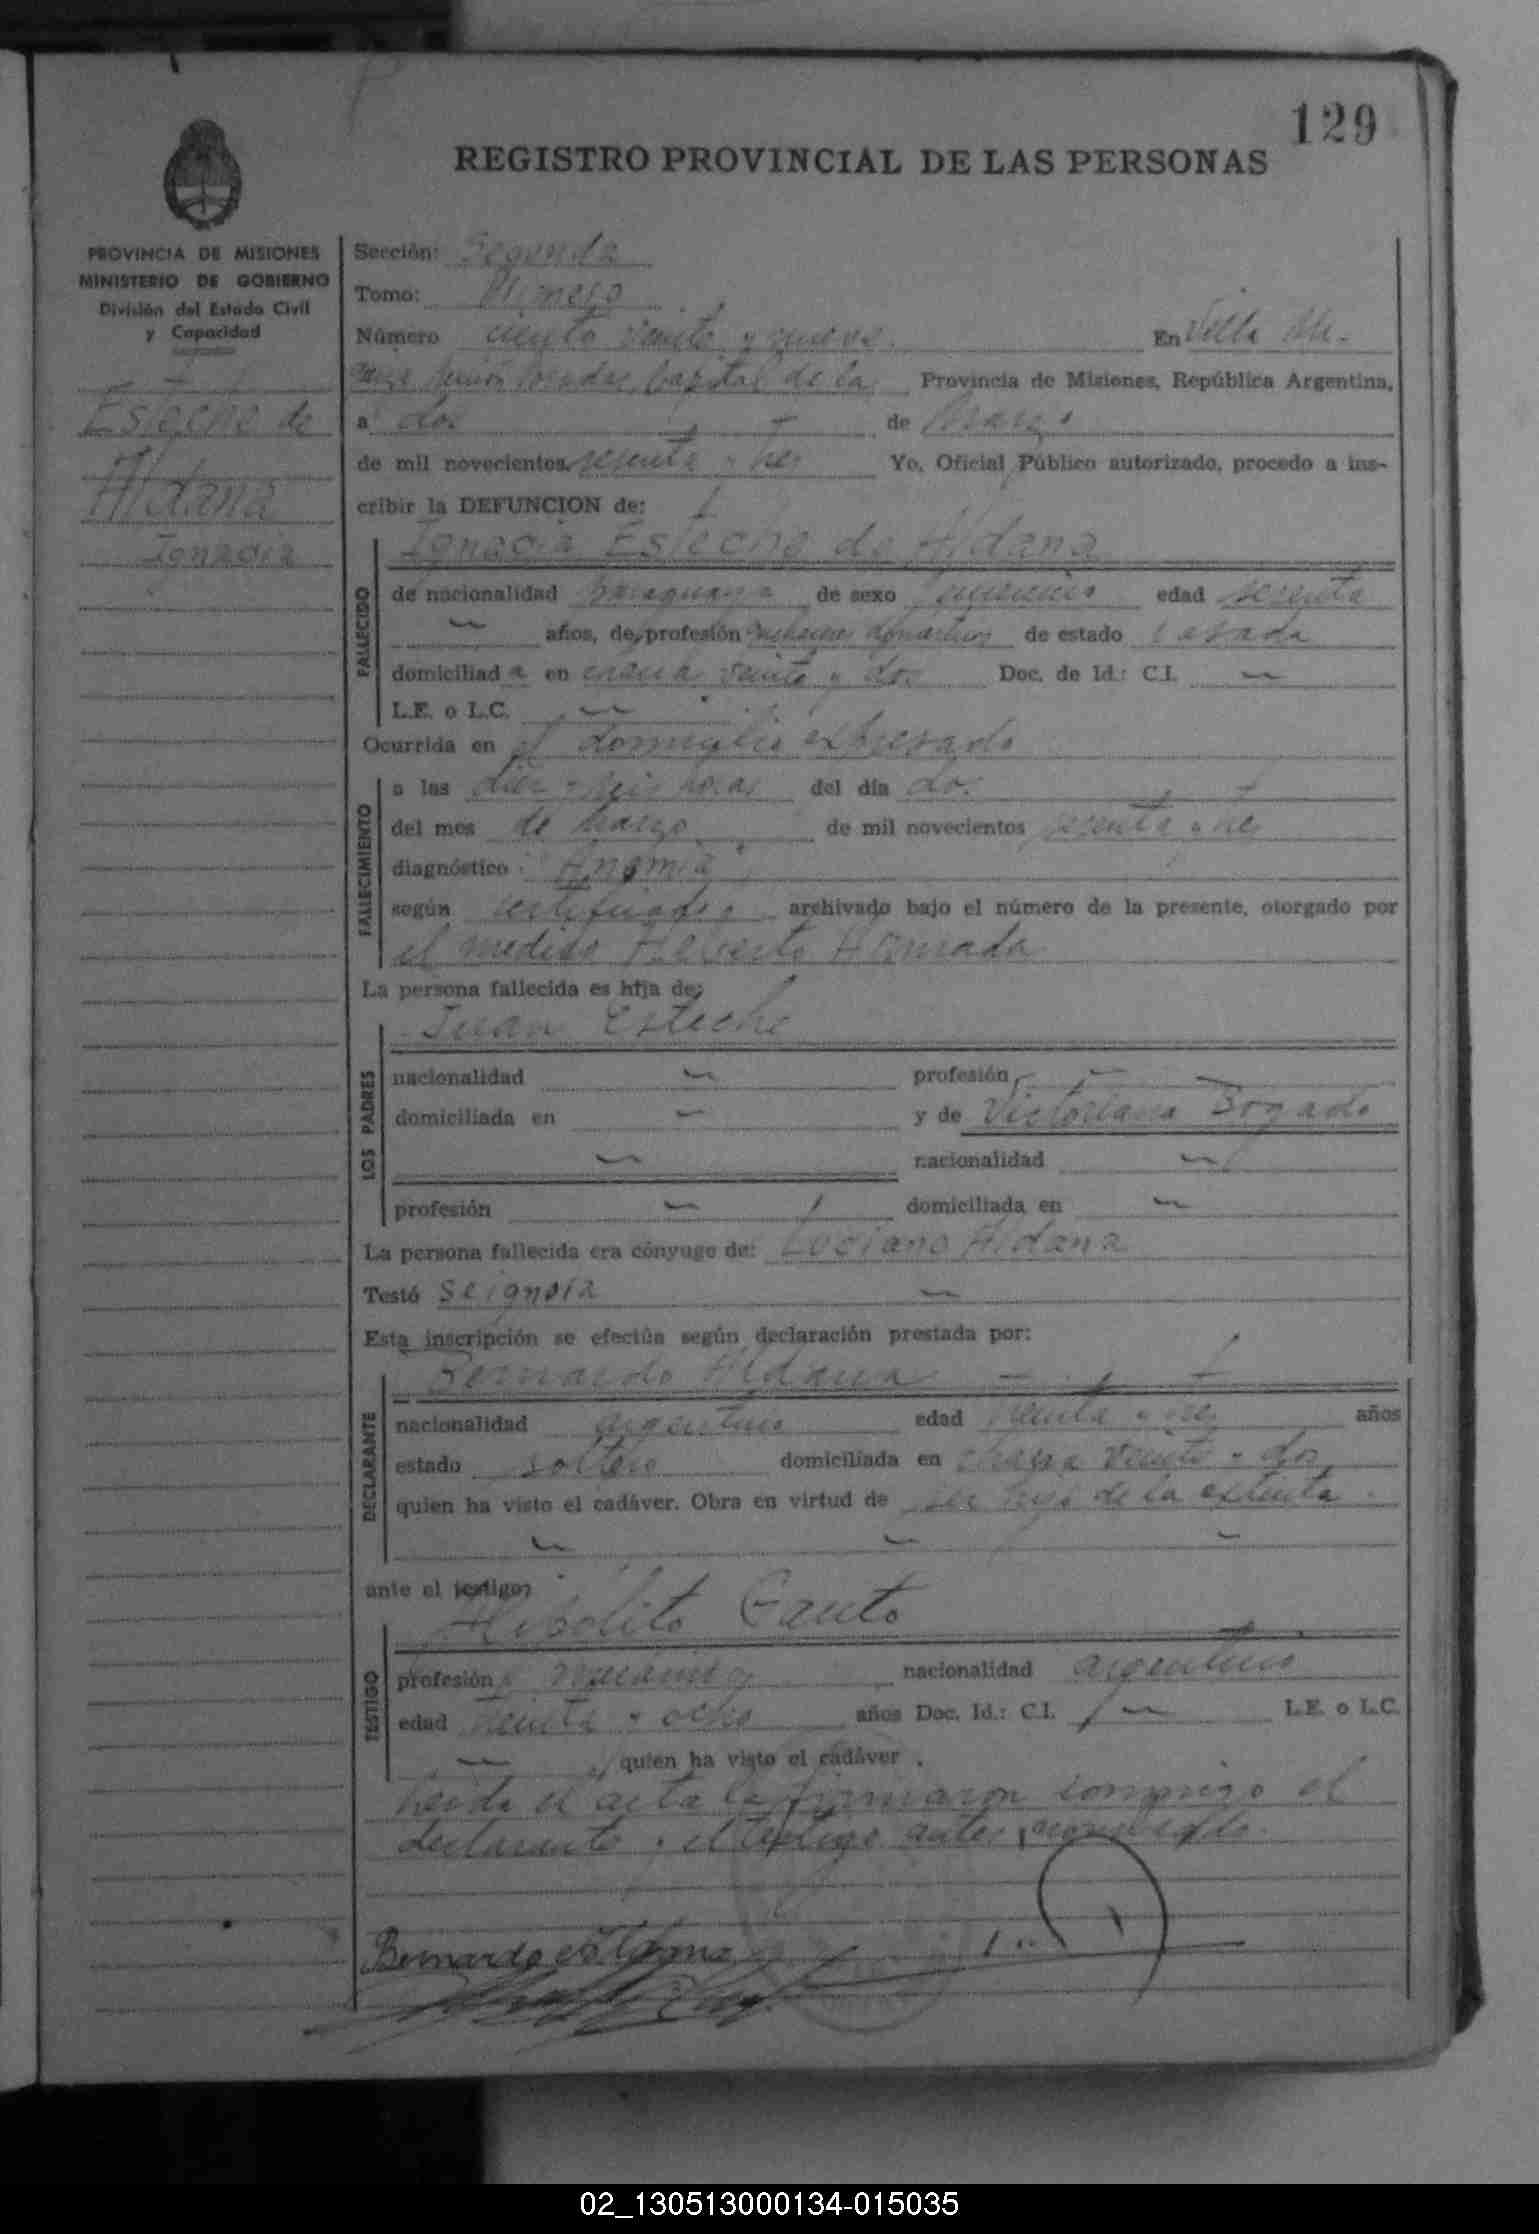 129
REGISTRO PROVINCIAL DE LAS PERSONAS
PROVINCIA DE MISIONES
MINISTERIO DE GOBIERNO
División del Estado Civil
y Capacidad
Esteche de
Aldana
Ignacia
Sección: Segunda
Tomo: Primero
Número ciento veinte y nueve. En Villa
Posadas, Capital de la Provincia de Misiones, República Argentina,
a dos de Marzo
de mil novecientos sesenta y tres Yo, Oficial Público autorizado, procedo a ins-
cribir la DEFUNCION de:
Ignacia Esteche de Aldana
FALLECIDO
de nacionalidad paraguaya de sexo femenino edad sesenta
años, de profesión quehaceres domésticos de estado casada
domiciliada en chacra veinte y dos Doc. de Id.: C.I.
L.E. o L.C.
Ocurrida en el domicilio expresado
FALLECIMIENTO
a las diez y seis horas del día dos
del mes de marzo de mil novecientos sesenta y tres
diagnóstico: Anemia
según certificado archivado bajo el número de la presente, otorgado por
el medico Alberto
La persona fallecida es hija de:
Juan Esteche
LOS PADRES
nacionalidad profesión
domiciliada en y de Victoriana Bogado
nacionalidad
profesión domiciliada en
La persona fallecida era cónyuge de: Luciano Aldana
Testó se ignora
Esta inscripción se efectúa según declaración prestada por:
Bernardo Aldana
DECLARANTE
nacionalidad argentino edad treinta y tres años
estado soltero domiciliada en chacra veinte y dos
quien ha visto el cadáver. Obra en virtud de ser hijo de la extinta.
ante el testigo:
Hipolito Cauto
TESTIGO
profesión mecánico nacionalidad argentino
edad treinta y ocho años Doc. Id.: C.I. L.E. o L.C.
quien ha visto el cadáver.
Leida el acta la firmaron conmigo el
declarante y el testigo antes mencionado.
Bernardo
02_130513000134-015035